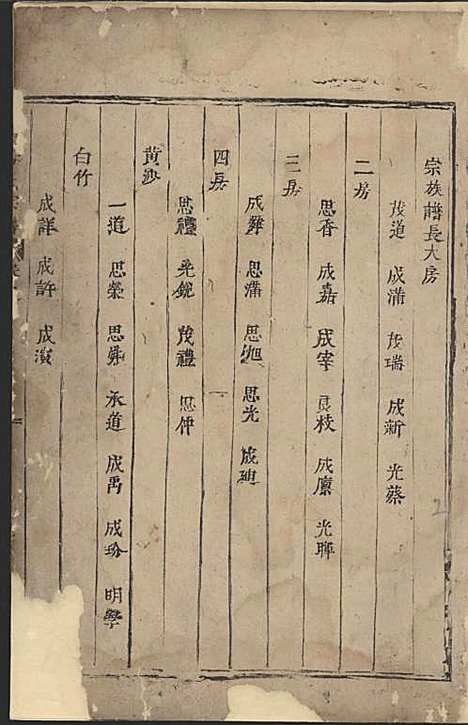 宗族譜長大房
茂道 成滿 茂瑞 成新 光蔡
二房
思香 成嘉 成宰 良枝 成廩 光聯
三房
成舜 思滿 思旭 思光 成璉
四房
思禮 光銳 茂禮 思仲
黃沙
一道 思榮 思舜 承道 成禹 成玢 明學
白竹
成詳 成許 成濱
2